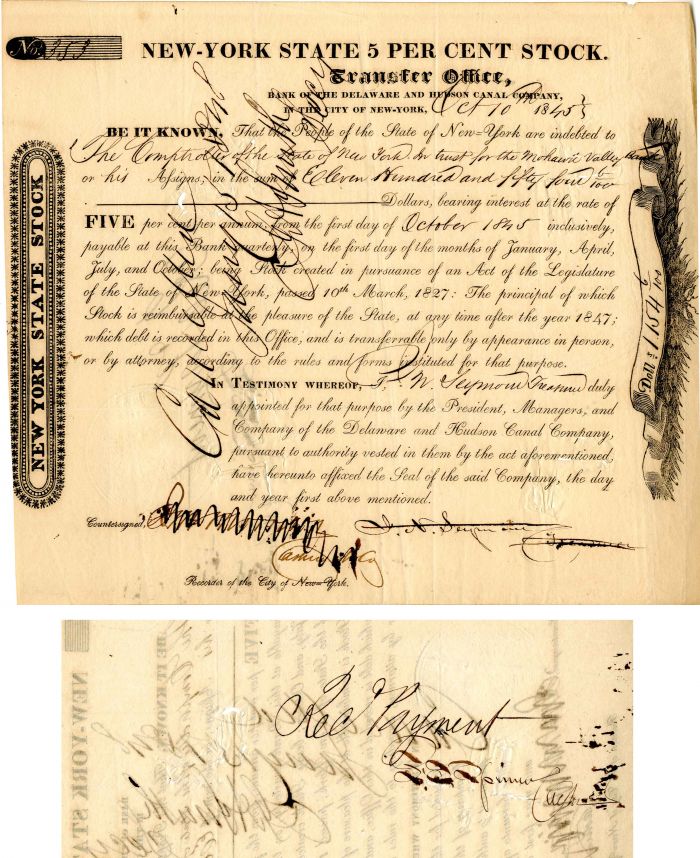 No. 353
NEW-YORK STATE 5 PER CENT STOCK.
Transfer Office,
BANK OF THE DELAWARE AND HUDSON CANAL COMPANY,
IN THE CITY OF NEW-YORK, Oct 10th 1845
BE IT KNOWN, That the People of the State of New-York are indebted to
The Comptroller of the state of New York In trust for the Mohawk Valley Bank
or his Assigns, in the sum of Eleven Hundred and fifty four
Dollars, bearing interest at the rate of
FIVE per cent per annum, from the first day of October 1845 inclusively,
payable at this Bank quarterly, on the first day of the months of January, April,
July, and October; being Stock created in pursuance of an Act of the Legislature
of the State of New-York, passed 10th March, 1827: The principal of which
Stock is reimbursable at the pleasure of the State, at any time after the year 1847;
which debt is recorded in this Office, and is transferrable only by appearance in person,
or by attorney, according to the rules and forms instituted for that purpose.
IN TESTIMONY WHEREOF, I. N. Seymour Treasurer duly
appointed for that purpose by the President, Managers, and
Company of the Delaware and Hudson Canal Company,
pursuant to authority vested in them by the act aforementioned,
have hereunto affixed the Seal of the said Company, the day
and year first above mentioned.
Countersigned,
I. N. Seymour
Treasurer
Recorder of the City of New-York.
NEW YORK STATE STOCK
Cancelled
Rec'd Payment
Spinner